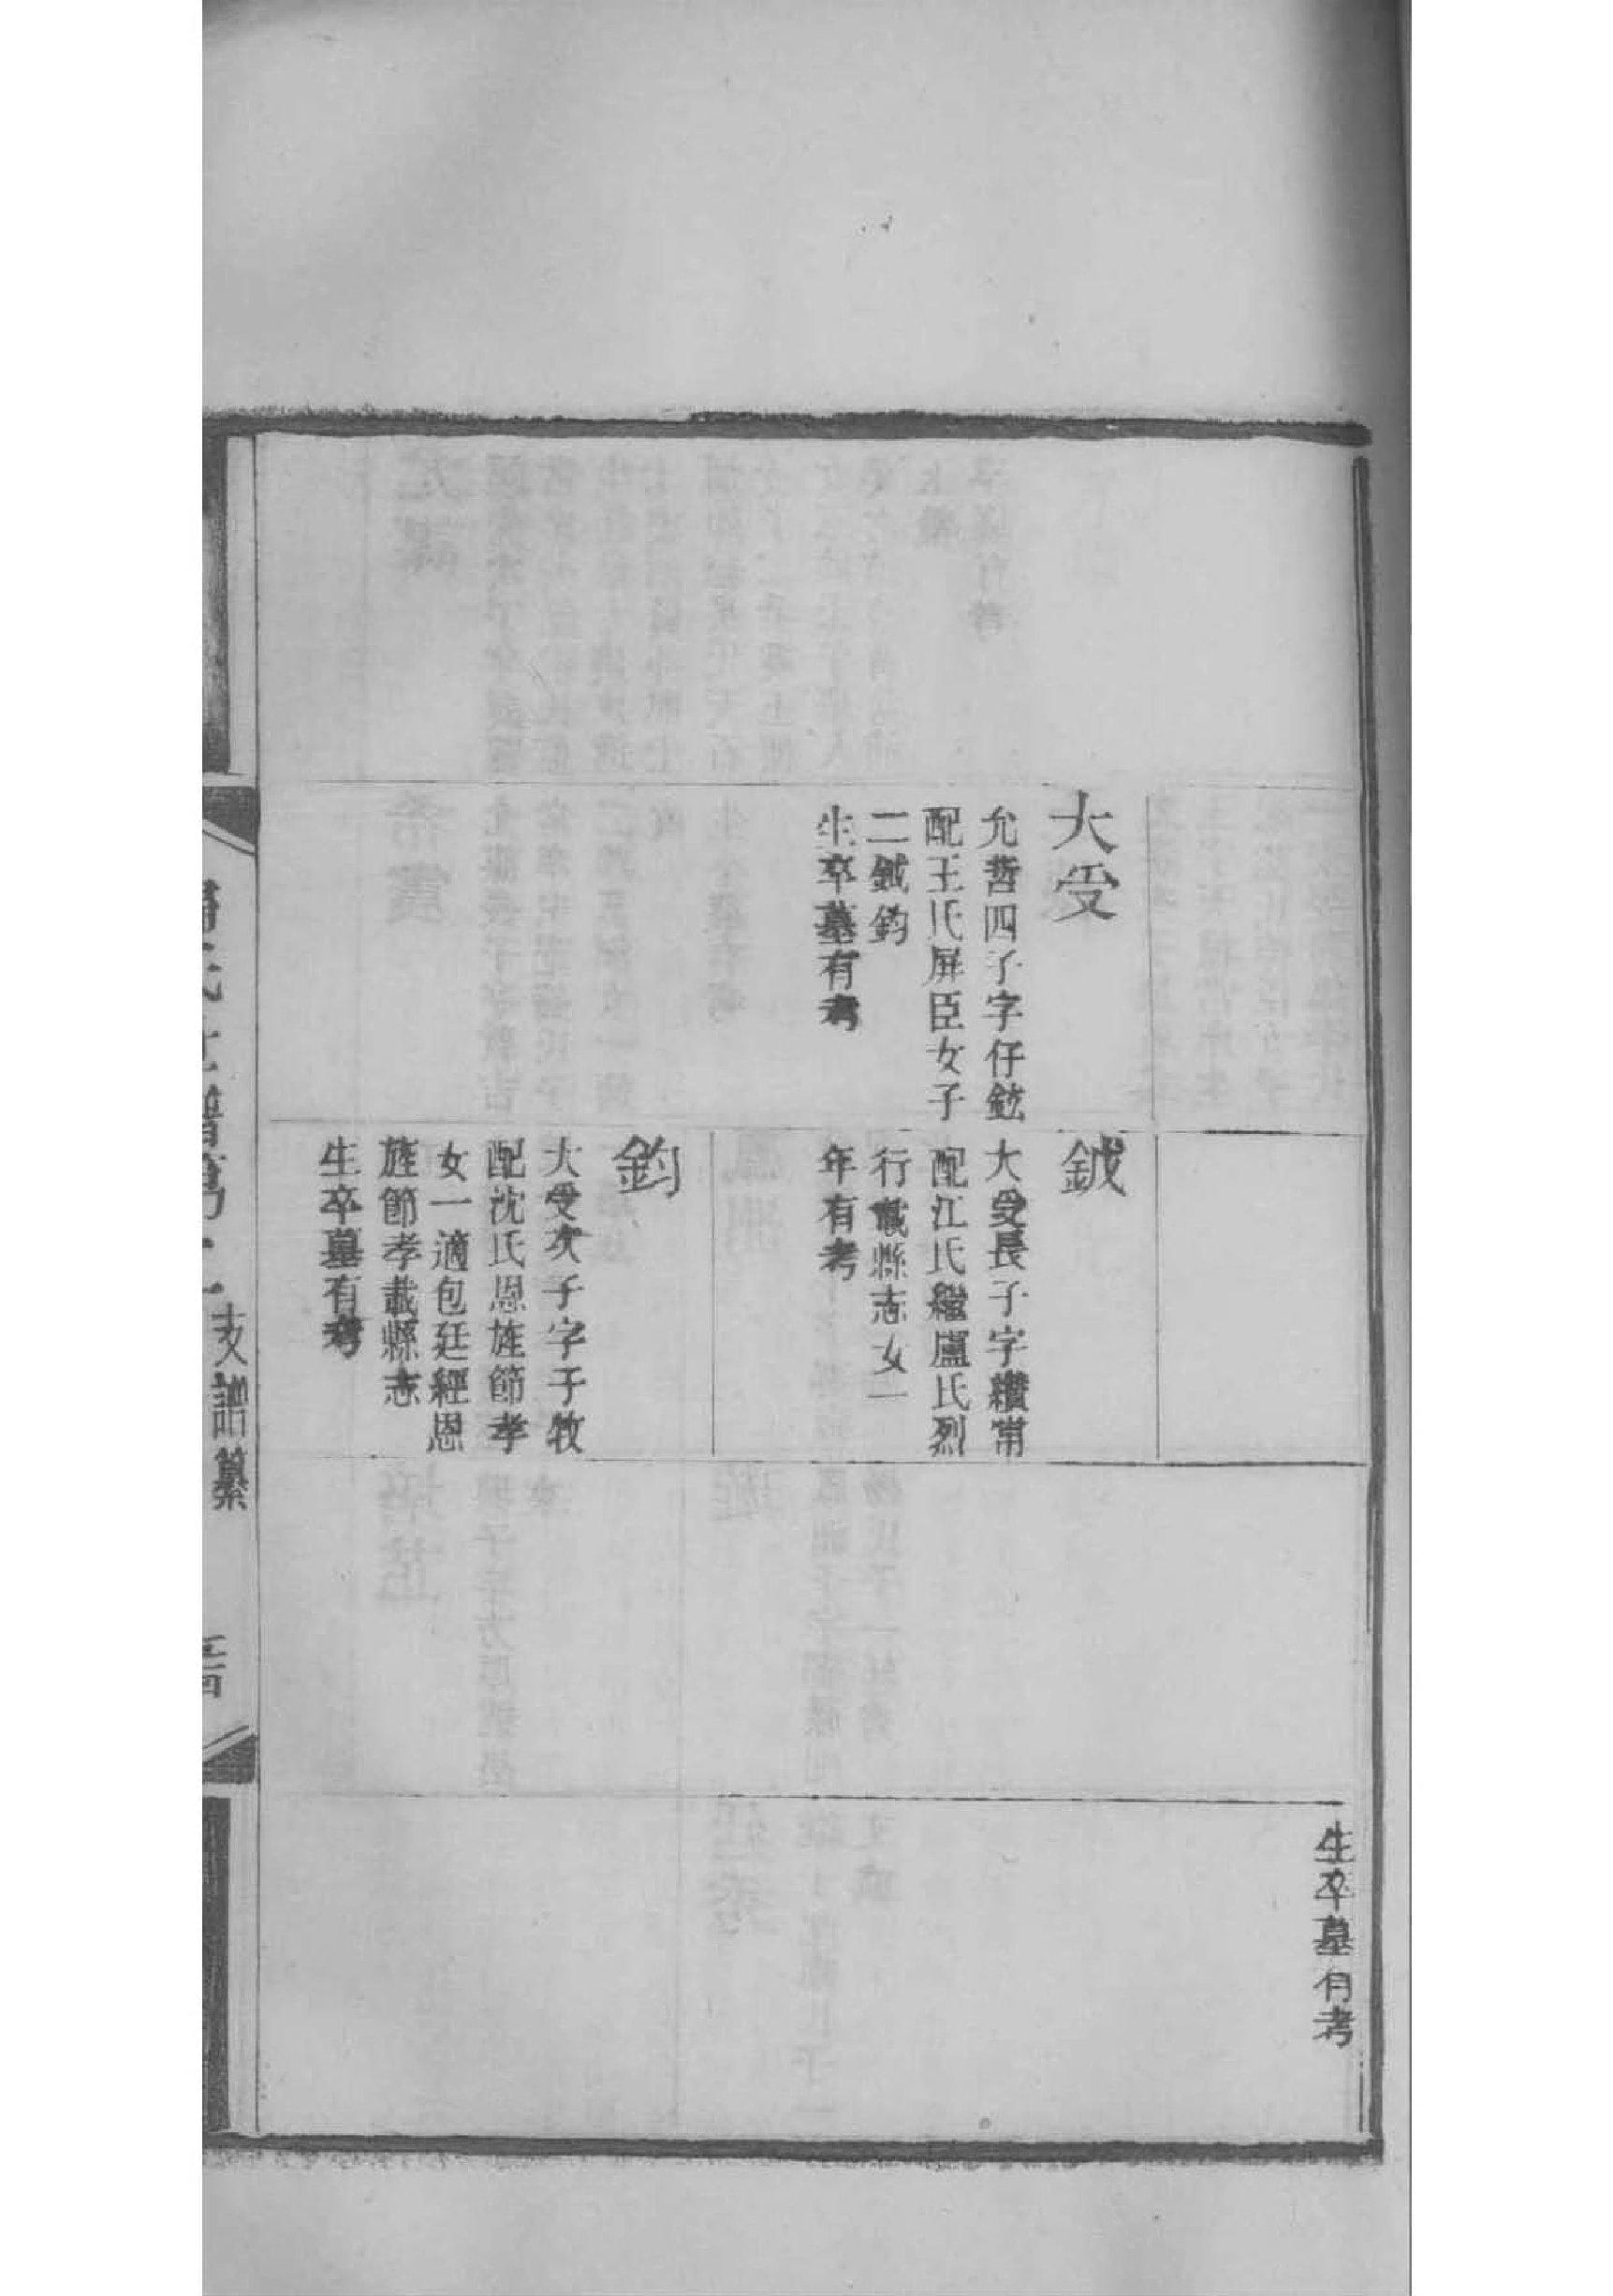 生卒墓有考
大受
允哲四子字仔鉉
配王氏屏臣女子
二鉞鈞
生卒墓有考
鉞
大受長子字纘常
配江氏繼盧氏烈
行載縣志女一
年有考
鈞
大受次子字子牧
配沈氏恩旌節孝
女一適包廷經恩
旌節孝載縣志
生卒墓有考
支譜纂